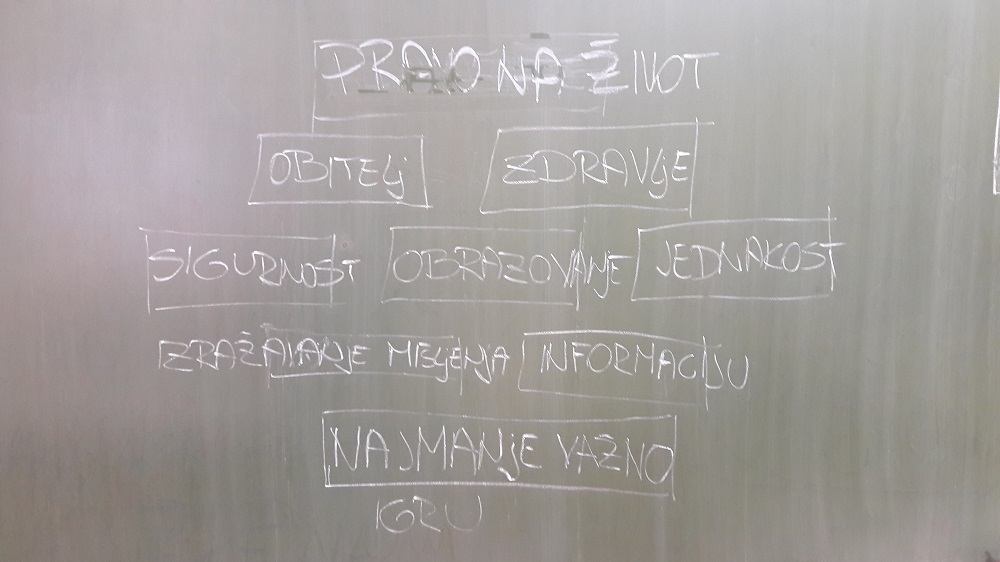 PRAVO NA ŽIVOT
OBITELJ ZDRAVLJE
SIGURNOST OBRAZOVANJE JEDNAKOST
IZRAŽAVANJE MIŠLJENJA INFORMACIJU
NAJMANJE VAŽNO
IGRU